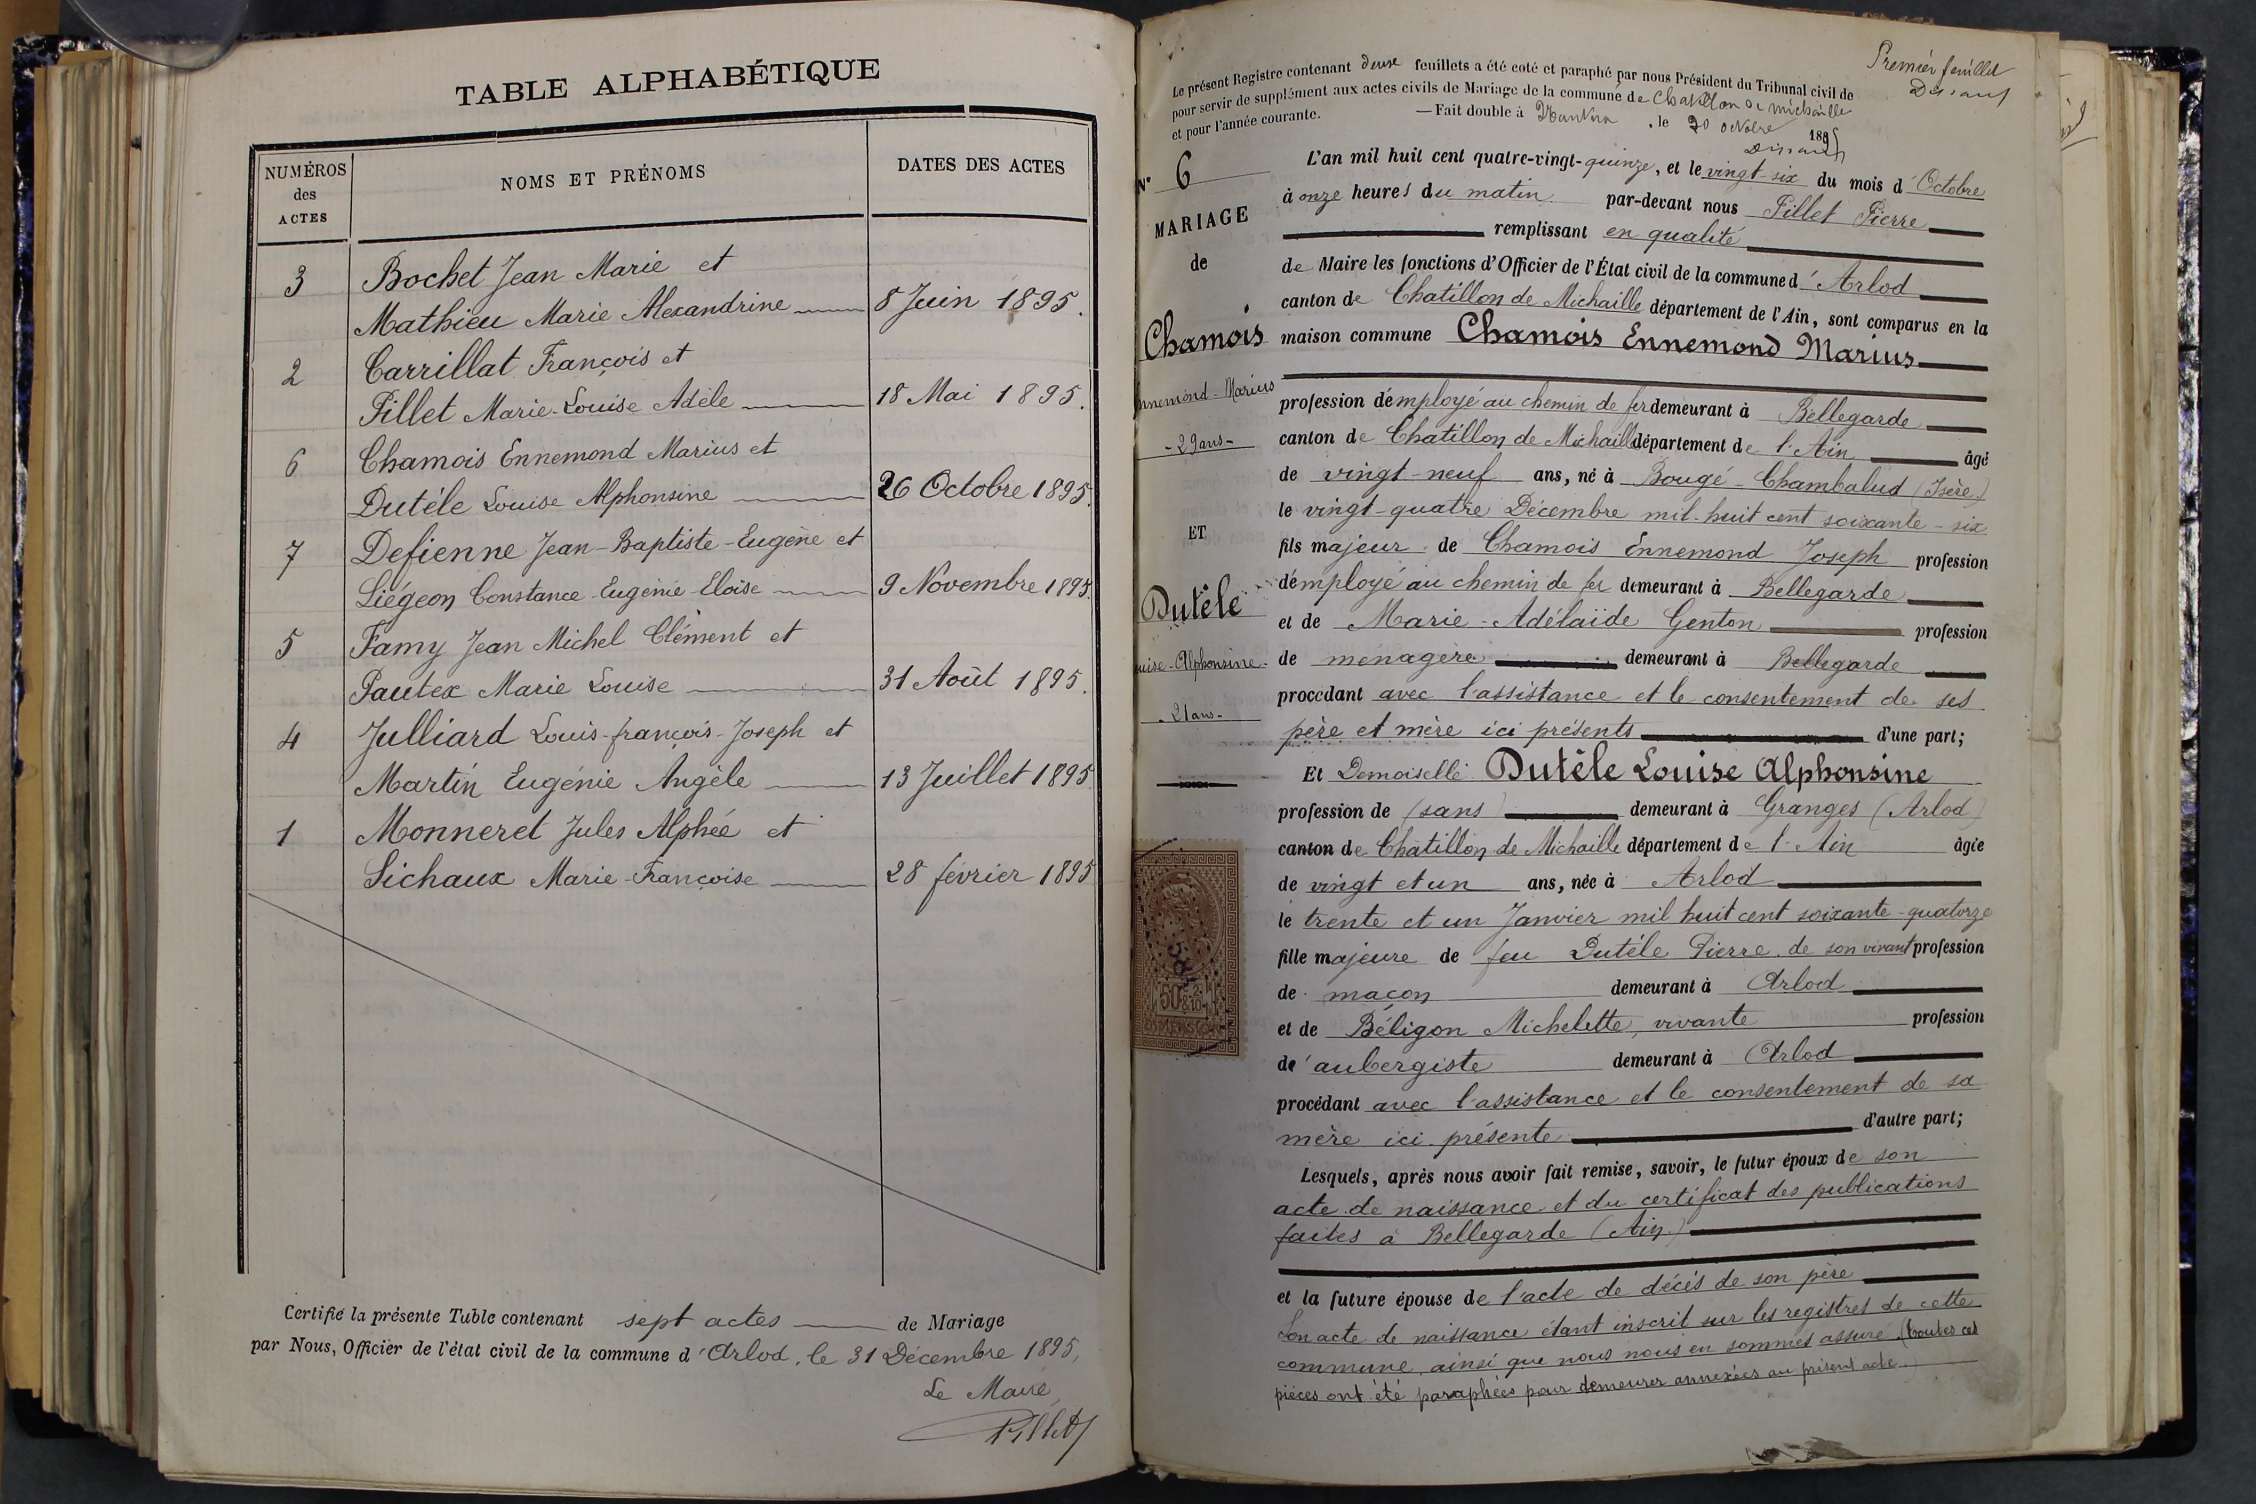 TABLE ALPHABÉTIQUE
NUMÉROS des ACTES
NOMS ET PRÉNOMS
DATES DES ACTES
3 Bochet Jean Marie et
Mathieu Marie Alexandrine 8 Juin 1895.
2 Carrillat François et
Pillet Marie-Louise Adèle 18 Mai 1895.
6 Chamois Ennemond Marius et
Dutèle Louise Alphonsine 26 Octobre 1895.
7 Defienne Jean-Baptiste-Eugène et
Liégeon Constance-Eugénie-Eloïse 9 Novembre 1895.
5 Famy Jean Michel Clément et
Pautex Marie Louise 31 Août 1895.
4 Julliard Louis-françois-Joseph et
Martin Eugénie Angèle 13 Juillet 1895
1 Monneret Jules Alphée et
Sichaux Marie-Françoise 28 février 1895
Certifié la présente Table contenant sept actes de Mariage
par Nous, Officier de l'état civil de la commune d'Arlod, le 31 Décembre 1895,
Le Maire,
Pillet
Premier feuillet
Le présent Registre contenant deux feuillets a été coté et paraphé par nous Président du Tribunal civil de
pour servir de supplément aux actes civils de Mariage de la commune de Chatillon de Michaille
et pour l'année courante. — Fait double à Nantua, le 20 octobre 1895
N° 6
MARIAGE
de
Chamois
Ennemond-Marius
- 29 ans -
ET
Dutèle
Louise-Alphonsine-
- 21 ans -
L'an mil huit cent quatre-vingt-quinze, et le vingt-six du mois d'Octobre
à onze heures du matin par-devant nous Pillet Pierre
remplissant en qualité
de Maire les fonctions d'Officier de l'État civil de la commune d'Arlod
canton de Chatillon de Michaille département de l'Ain, sont comparus en la
maison commune Chamois Ennemond Marius
profession d'employé au chemin de fer demeurant à Bellegarde
canton de Chatillon de Michaille département de l'Ain âgé
de vingt-neuf ans, né à Bougé-Chambalud (Isère)
le vingt-quatre Décembre mil-huit cent soixante-six
fils majeur de Chamois Ennemond Joseph profession
d'employé au chemin de fer demeurant à Bellegarde
et de Marie-Adélaïde Genton profession
de ménagère demeurant à Bellegarde
procédant avec l'assistance et le consentement de ses
père et mère ici présents d'une part;
Et Demoiselle Dutèle Louise Alphonsine
profession de (sans) demeurant à Granges (Arlod)
canton de Chatillon de Michaille département de l'Ain âgée
de vingt et un ans, née à Arlod
le trente et un Janvier mil huit cent soixante-quatorze
fille majeure de feu Dutèle Pierre, de son vivant profession
de maçon demeurant à Arlod
et de Béligon Michelette, vivante profession
de aubergiste demeurant à Arlod
procédant avec l'assistance et le consentement de sa
mère ici présente d'autre part;
Lesquels, après nous avoir fait remise, savoir, le futur époux de son
acte de naissance et du certificat des publications
faites à Bellegarde (Ain)
et la future épouse de l'acte de décès de son père
Son acte de naissance étant inscrit sur les registres de cette
commune, ainsi que nous nous en sommes assuré. (toutes ces
pièces ont été paraphées pour demeurer annexées au présent acte.